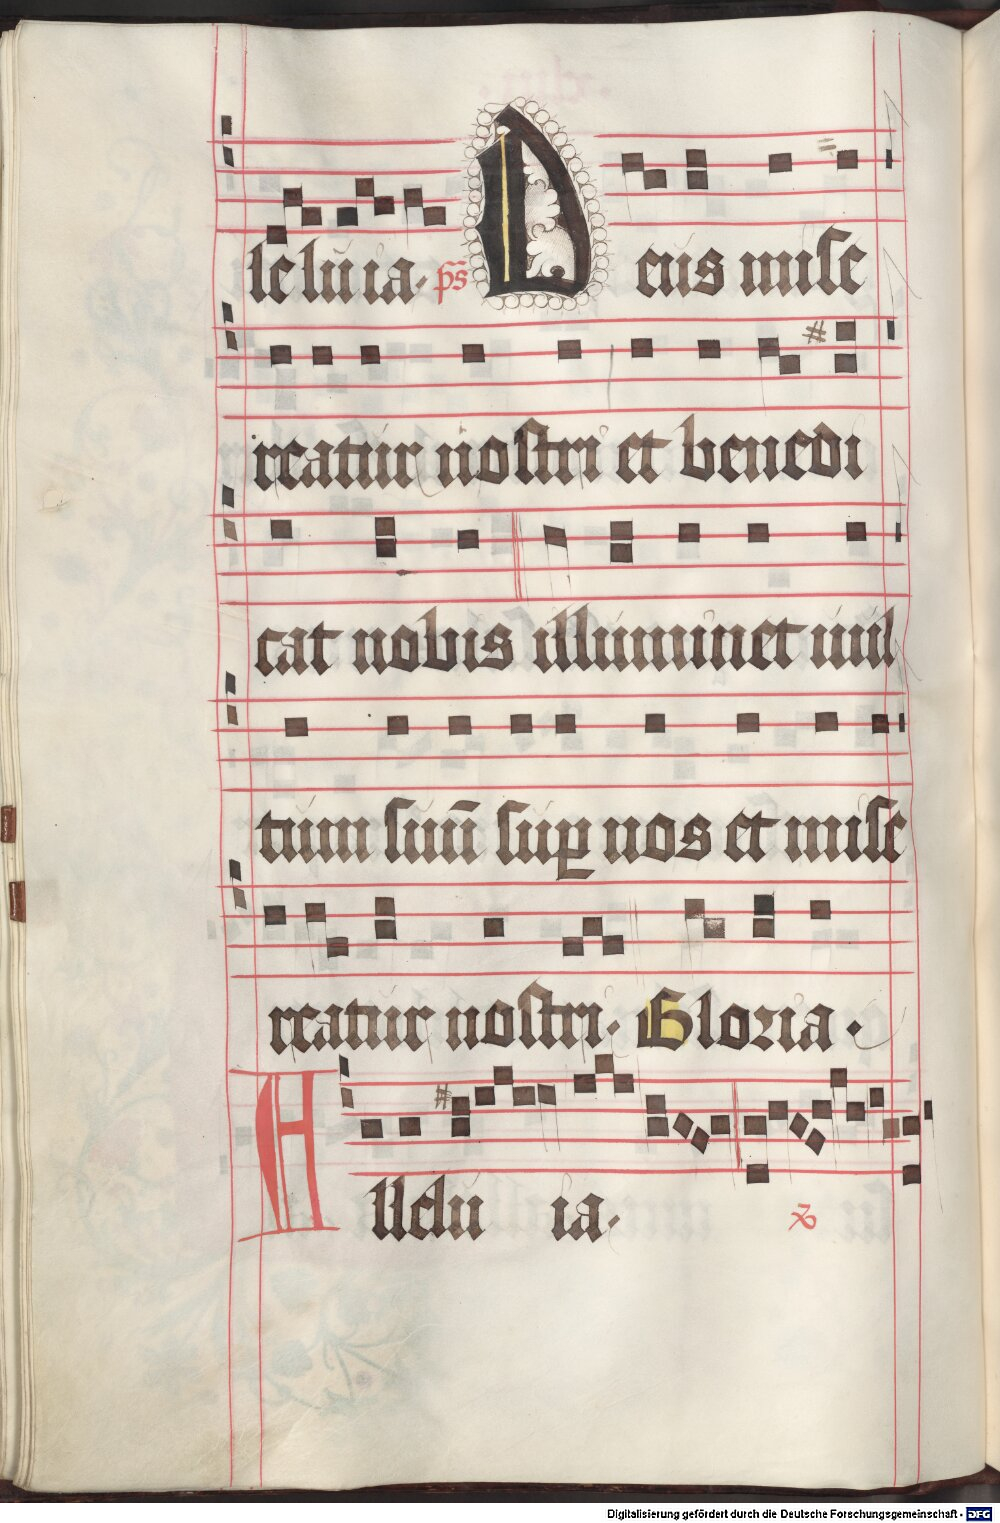 leluia. ps Deus mise
reatur nostri et benedi
cat nobis illuminet uul
tum suū sup nos et mise
reatur nostri. Gloria.
Alleluia.
Digitalisierung gefördert durch die Deutsche Forschungsgemeinschaft - DFG